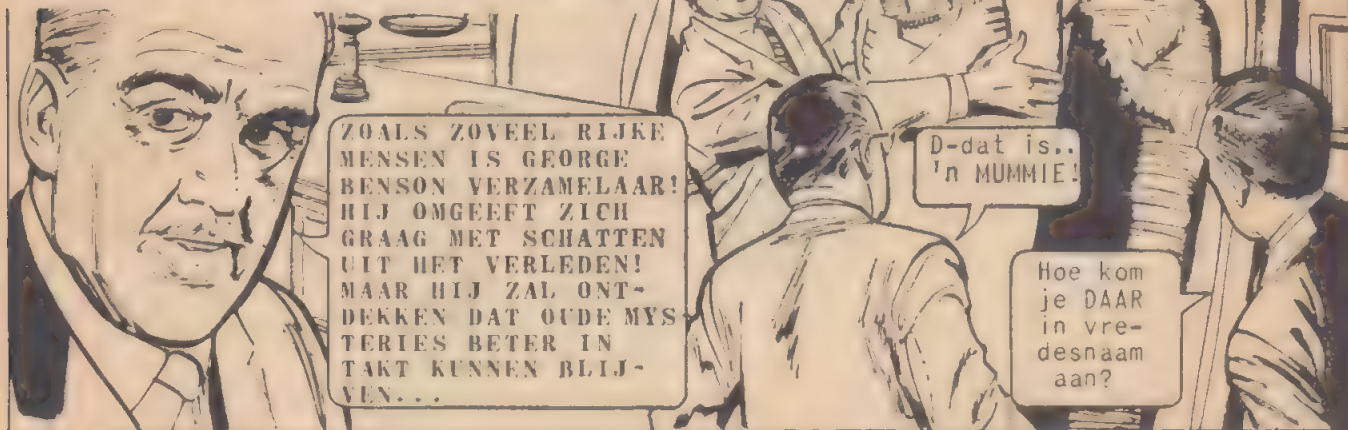 ZOALS ZOVEEL RIJKE
MENSEN IS GEORGE
BENSON VERZAMELAAR!
HIJ OMGEEFT ZICH
GRAAG MET SCHATTEN
UIT HET VERLEDEN!
MAAR HIJ ZAL ONT-
DEKKEN DAT OUDE MYS
TERIES BETER IN
TAKT KUNNEN BLIJ-
VEN...
D-dat is..
'n MUMMIE!
Hoe kom
je DAAR
in vre-
desnaam
aan?